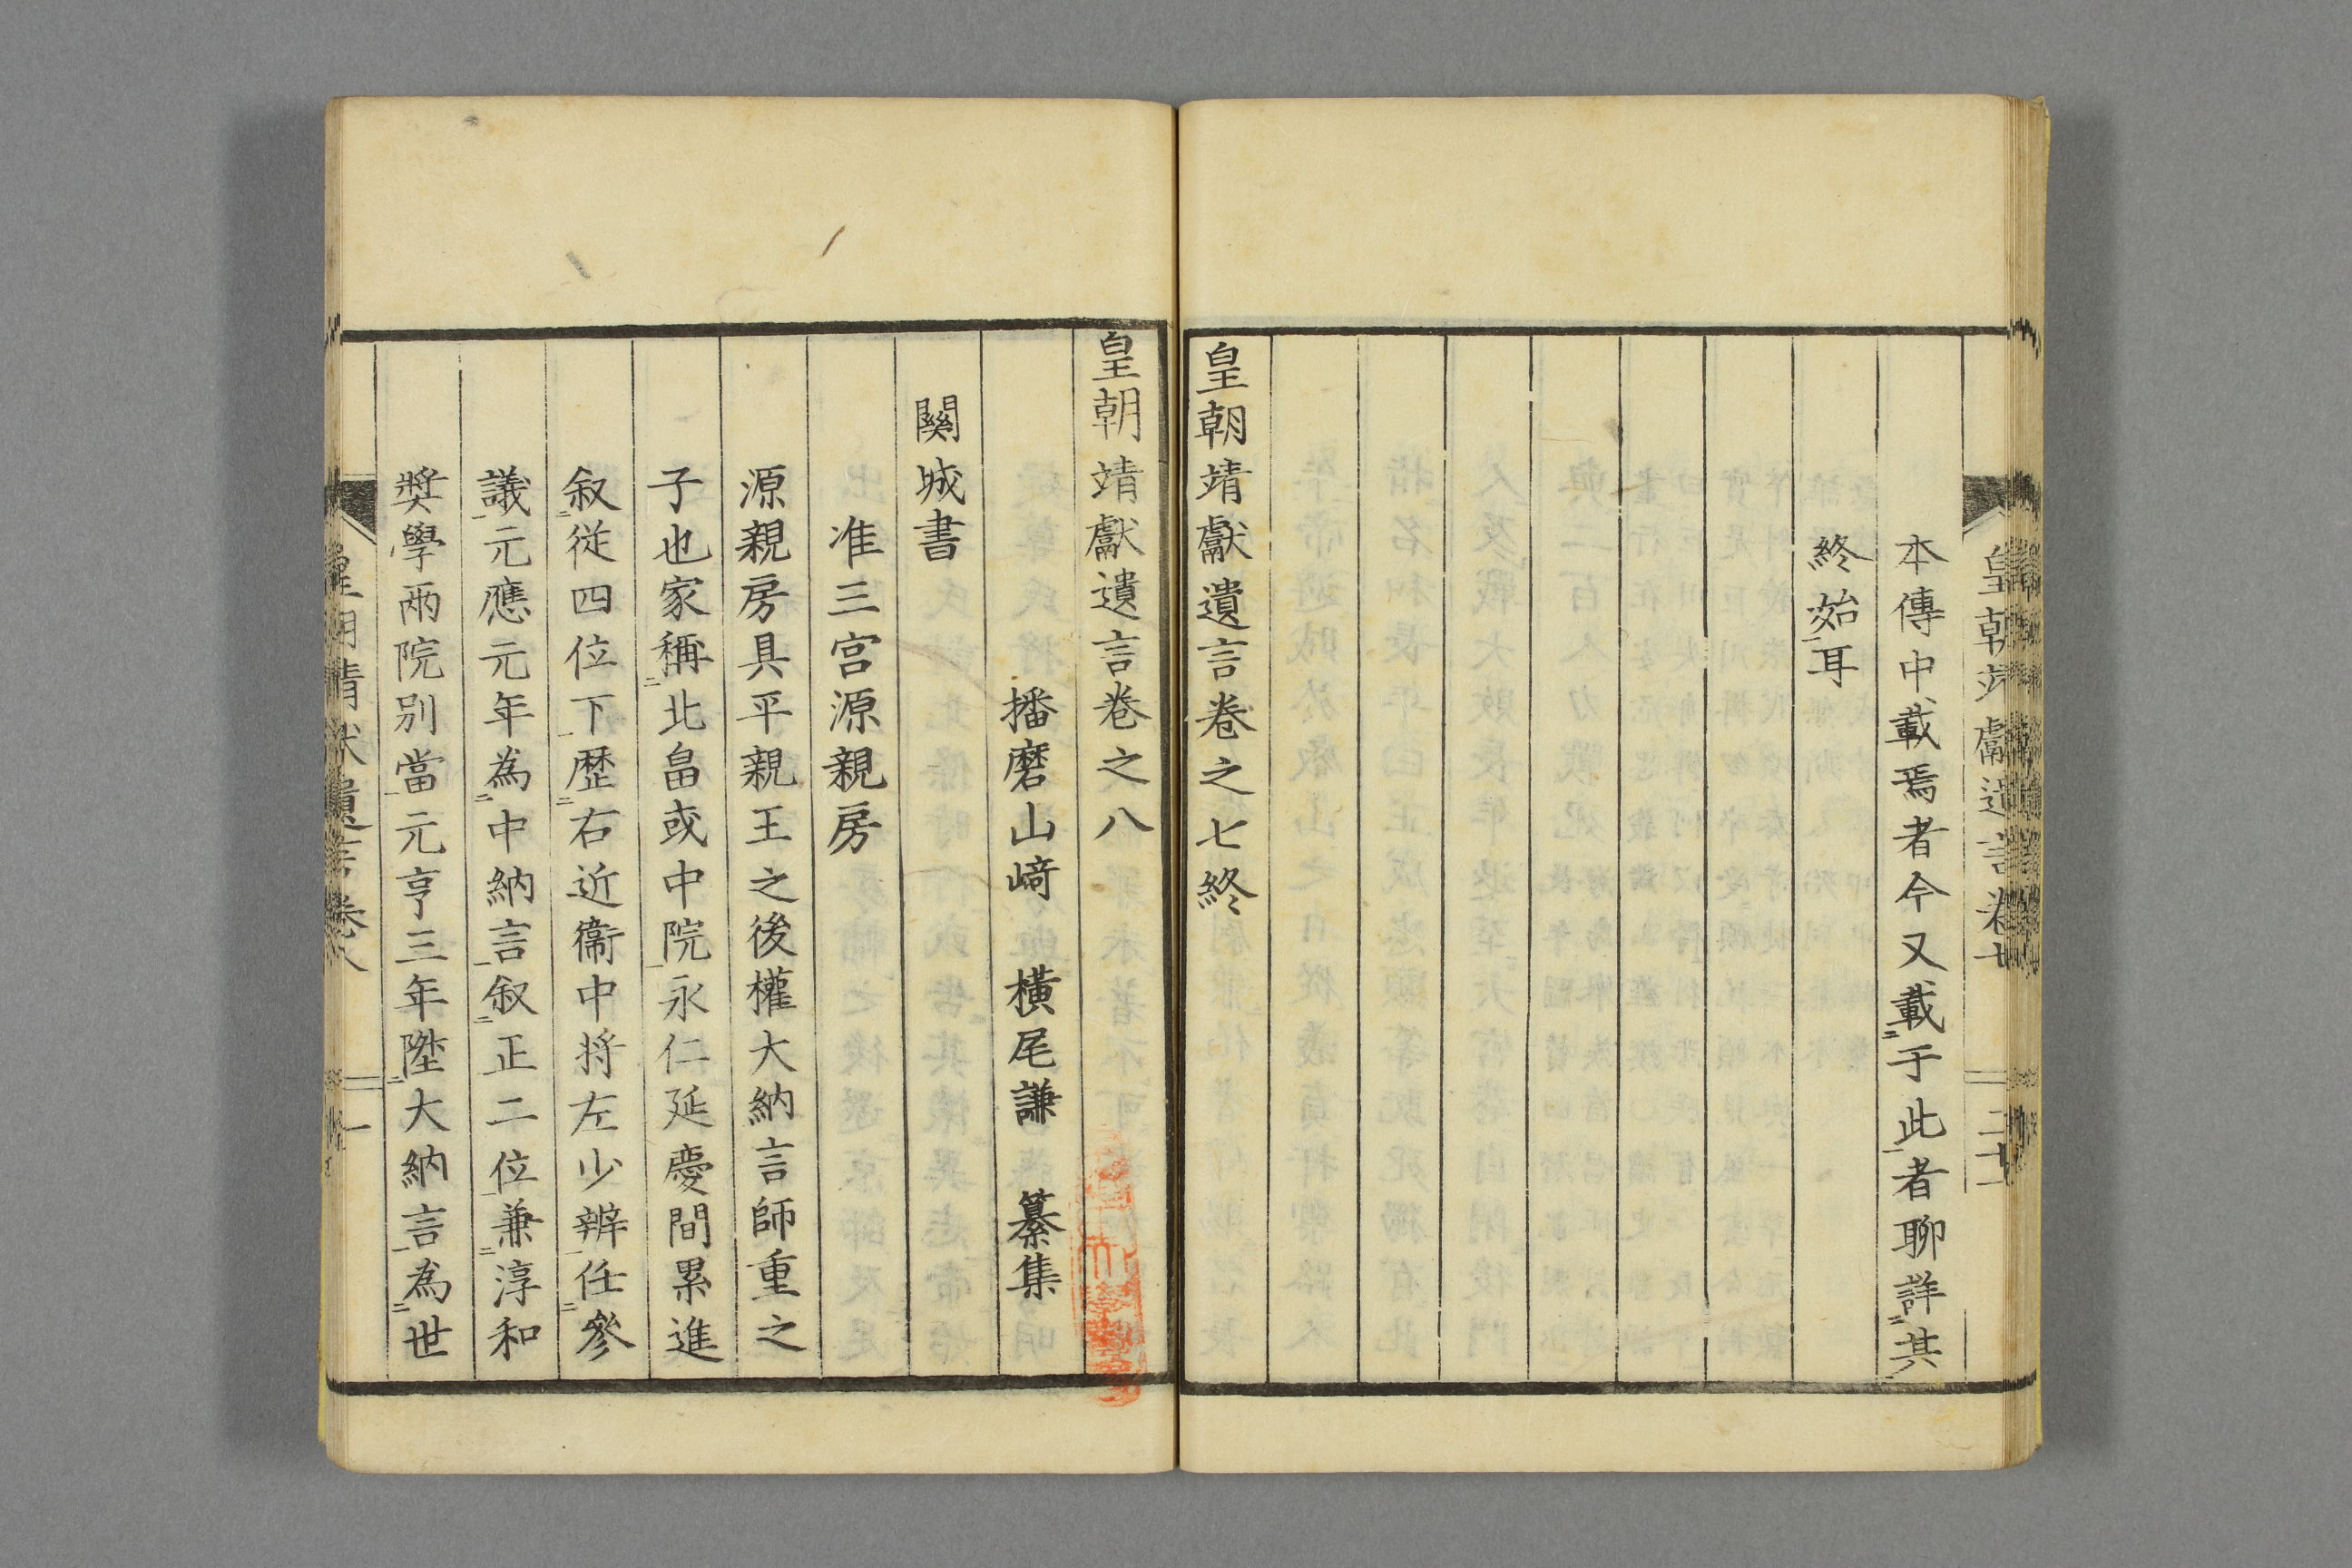 本傳中載焉者今又載于此者聊詳其
終始耳
皇朝靖獻遺言卷之七終
皇朝靖獻遺言卷之八
播磨山﨑　橫尾謙　纂集
關城書
准三宮源親房
源親房具平親王之後權大納言師重之
子也家稱北畠或中院永仁延慶間累進
叙從四位下歷右近衞中将左少辨任參
議元應元年為中納言叙正二位兼淳和
奬學兩院別當元亨三年陞大納言為世